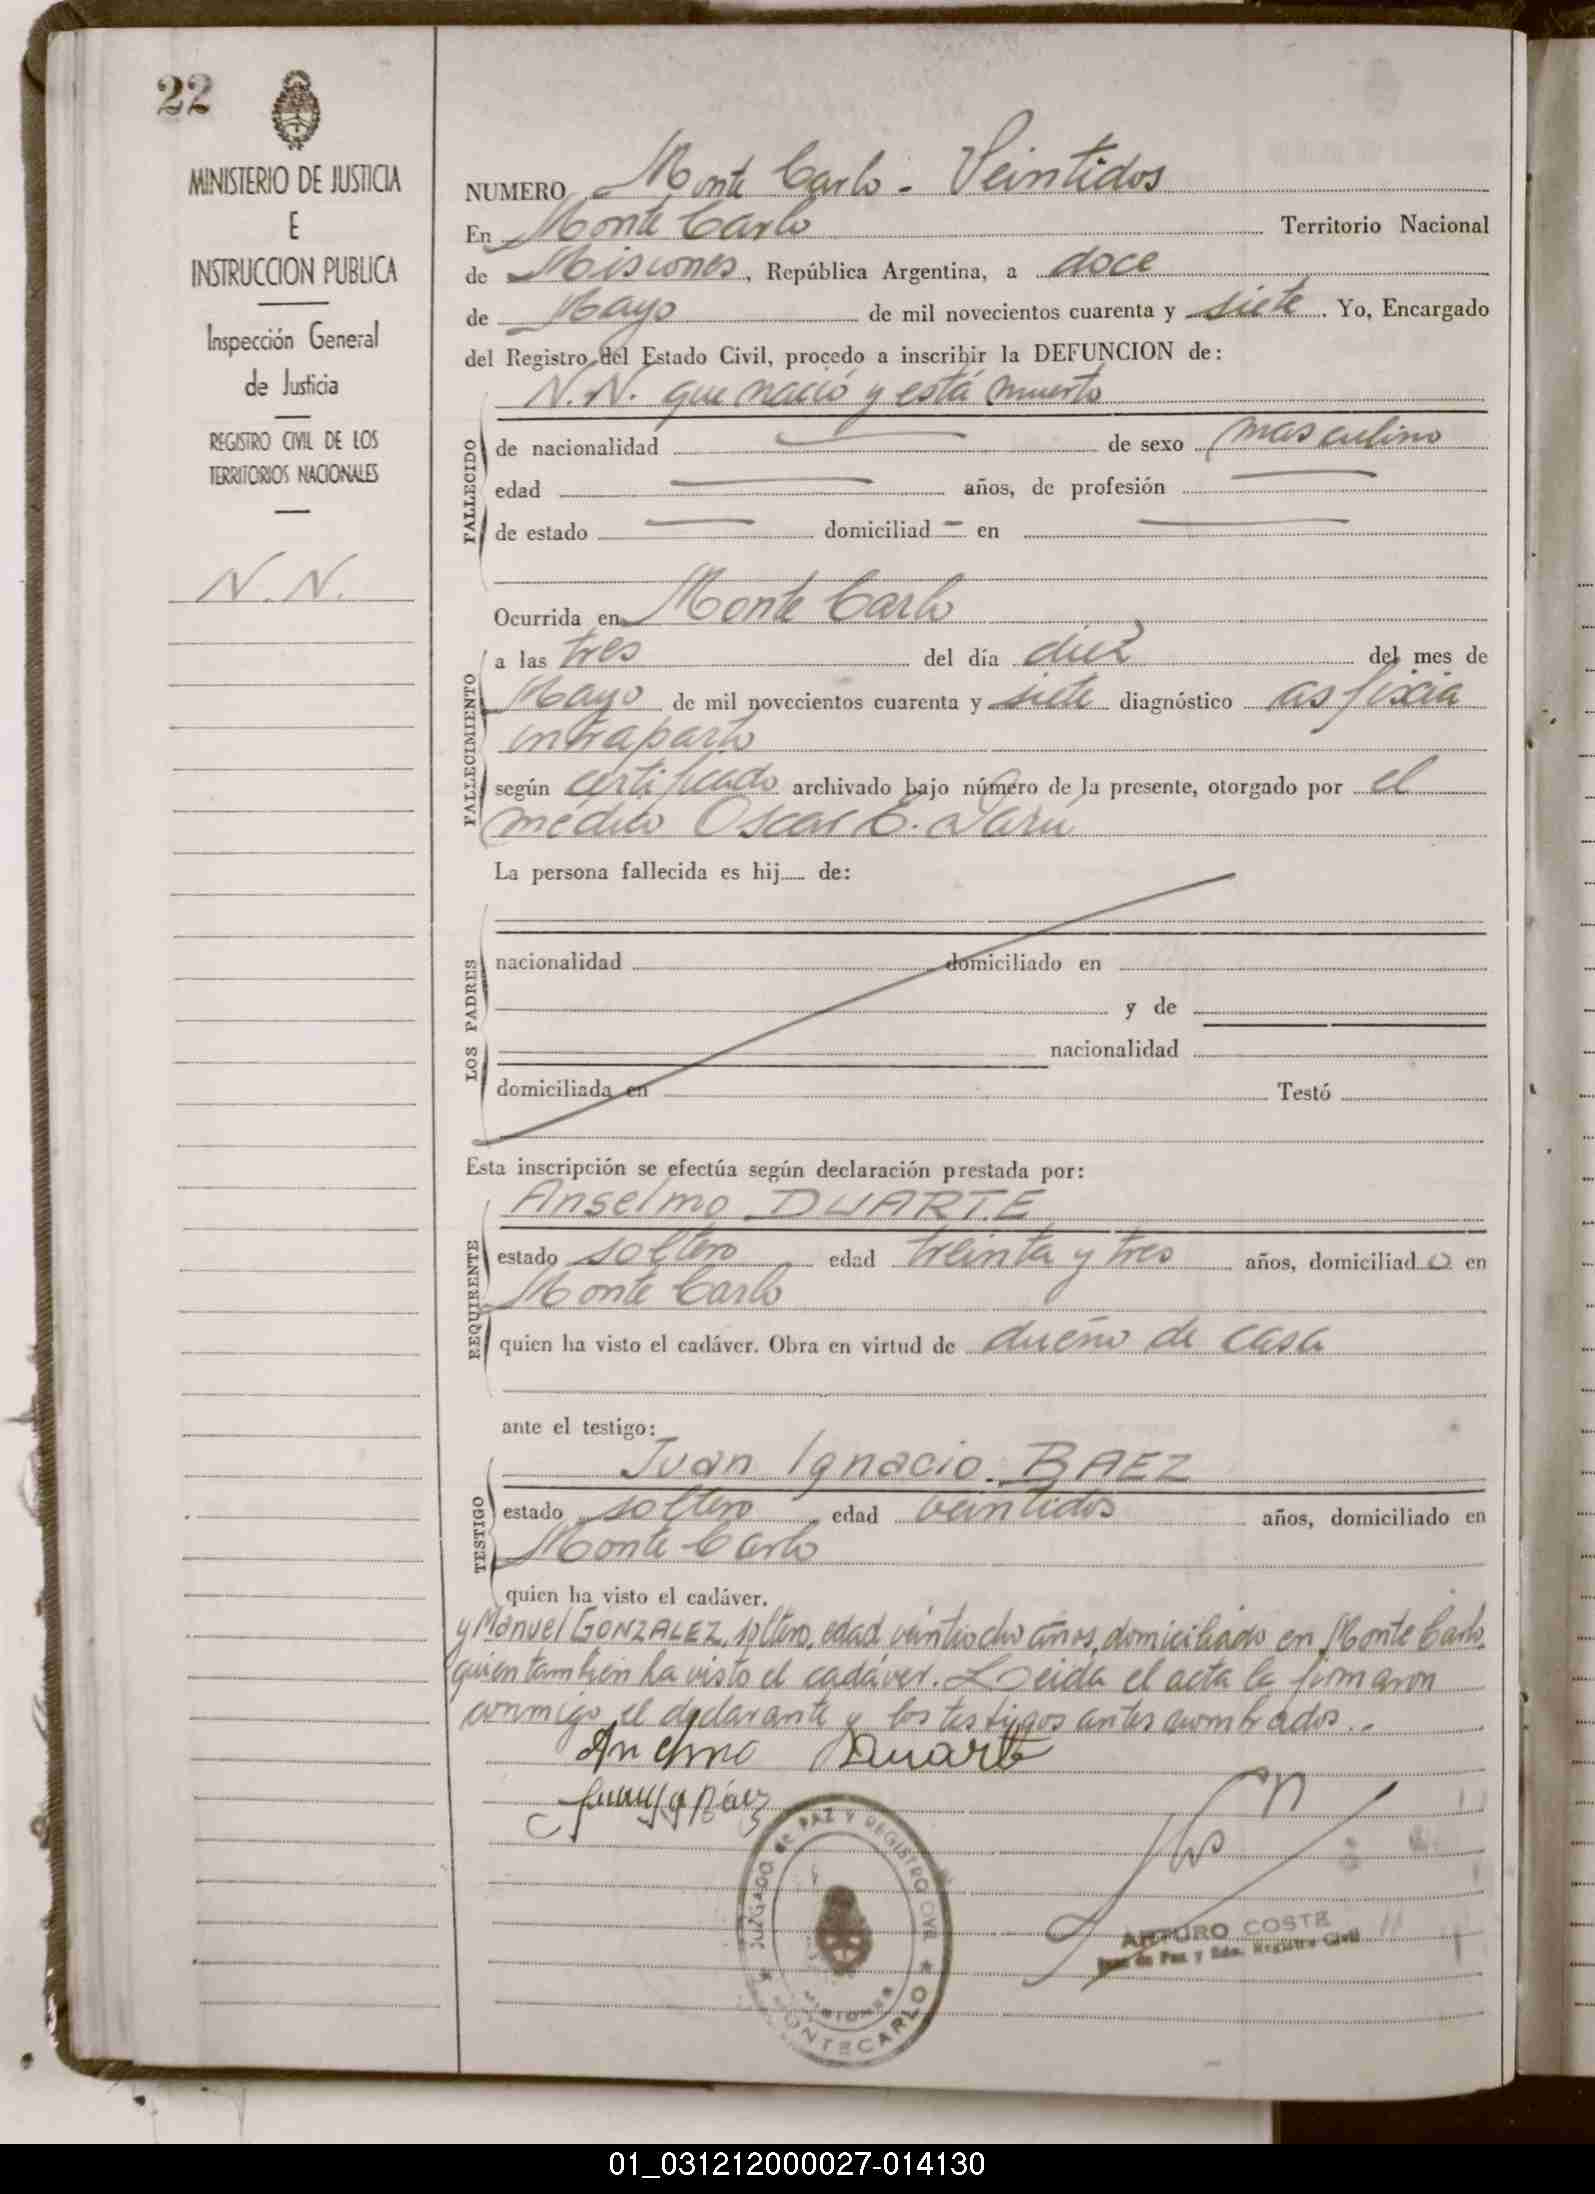 22
MINISTERIO DE JUSTICIA
E
INSTRUCCION PUBLICA
Inspección General
de Justicia
REGISTRO CIVIL DE LOS
TERRITORIOS NACIONALES
N. N.
NUMERO Monte Carlo - Veintidos
En Monte Carlo Territorio Nacional
de Misiones, República Argentina, a doce
de Mayo de mil novecientos cuarenta y siete. Yo, Encargado
del Registro del Estado Civil, procedo a inscribir la DEFUNCION de:
N.N. que nació y está muerto
FALLECIDO
de nacionalidad — de sexo masculino
edad — años, de profesión —
de estado — domiciliad — en —
Ocurrida en Monte Carlo
FALLECIMIENTO
a las tres del día diez del mes de
Mayo de mil novecientos cuarenta y siete diagnóstico asfixia
intraparto
según certificado archivado bajo número de la presente, otorgado por el
médico Oscar E.
La persona fallecida es hij.... de:
LOS PADRES
nacionalidad domiciliado en
y de
nacionalidad
domiciliada en Testó
Esta inscripción se efectúa según declaración prestada por:
REQUIRENTE
Anselmo DUARTE
estado soltero edad treinta y tres años, domiciliad o en
Monte Carlo
quien ha visto el cadáver. Obra en virtud de dueño de casa
ante el testigo:
TESTIGO
Juan Ignacio BAEZ
estado soltero edad veintidos años, domiciliado en
Monte Carlo
quien ha visto el cadáver.
y Manuel GONZALEZ, soltero, edad veintiocho años, domiciliado en Monte Carlo,
quien tambien ha visto el cadáver. Leida el acta la firmaron
conmigo el declarante y los testigos antes nombrados..
Anselmo Duarte
JUZGADO DE PAZ Y REGISTRO CIVIL
MISIONES
MONTECARLO
ARTURO COSTE
Juez de Paz y Edo. Registro Civil
01_031212000027-014130